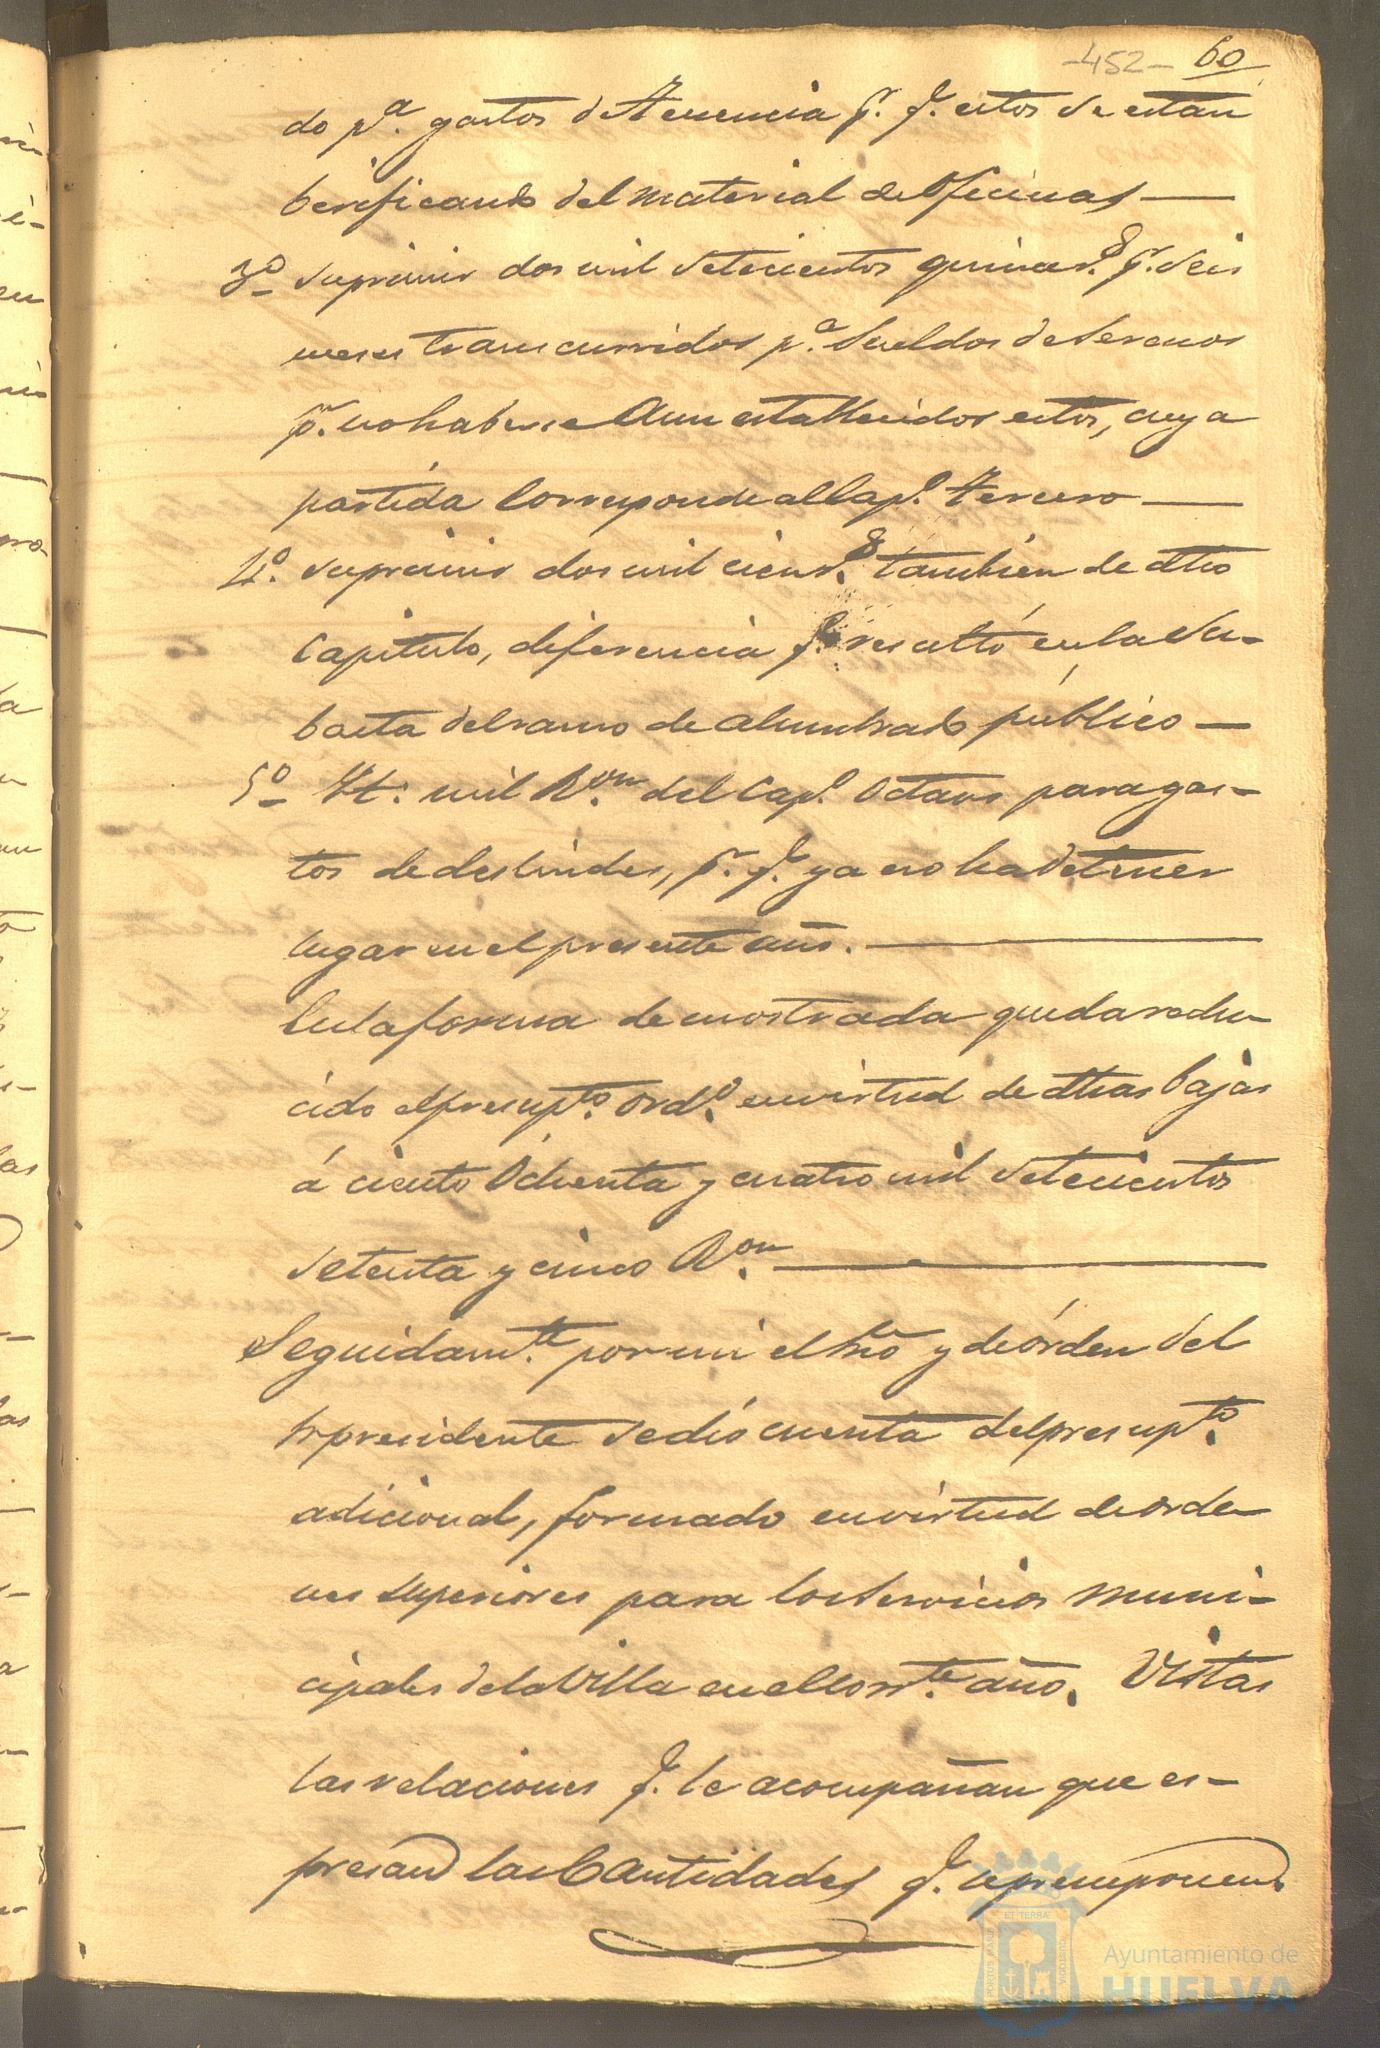 -452- 60
do pª. gastos de Herencia pr. q. estos se están
berificando del material de Oficinas —
3º Suprimir dos mil setecientos quince rs. pr. seis
meses transcurridos pª. Sueldos de Serenos
pr. no haberse Aun establecidos estos, cuya
partida Corresponde al Capº. tercero —
4º. Suprimir dos mil cien rs. tambien de dho
Capitulo, diferencia q. resultó en la Su-
basta del ramo de alumbrado público —
5º Yt: mil Ron. del Capº. Octavo para gas-
tos de deslindes, pr. q. ya no ha de tener
lugar en el presente año. —
En la forma demostrada queda redu-
cido el presuptº. ordº. en virtud de dhas bajas
á ciento Ochenta y cuatro mil setecientos
setenta y cinco Ron. —
Seguidamte. por mi el Srio y de órden del
Sr presidente se dió cuenta del presuptº.
adicional, formado en virtud de orde-
nes superiores para los Servicios muni-
cipales de la Villa en el Corrte. año. Vistas
las relaciones q. le acompañan que es-
presan las Cantidades q. se presuponen
PORTUS MARIS ET TERRÆ CUSTODIA
Ayuntamiento de
HUELVA